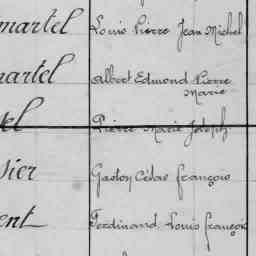 martel Louis Pierre Jean Michel
martel Albert Edmond Pierre
Marie
el Pierre Marie Joseph
sier Gaston César François
ent Ferdinand Louis François